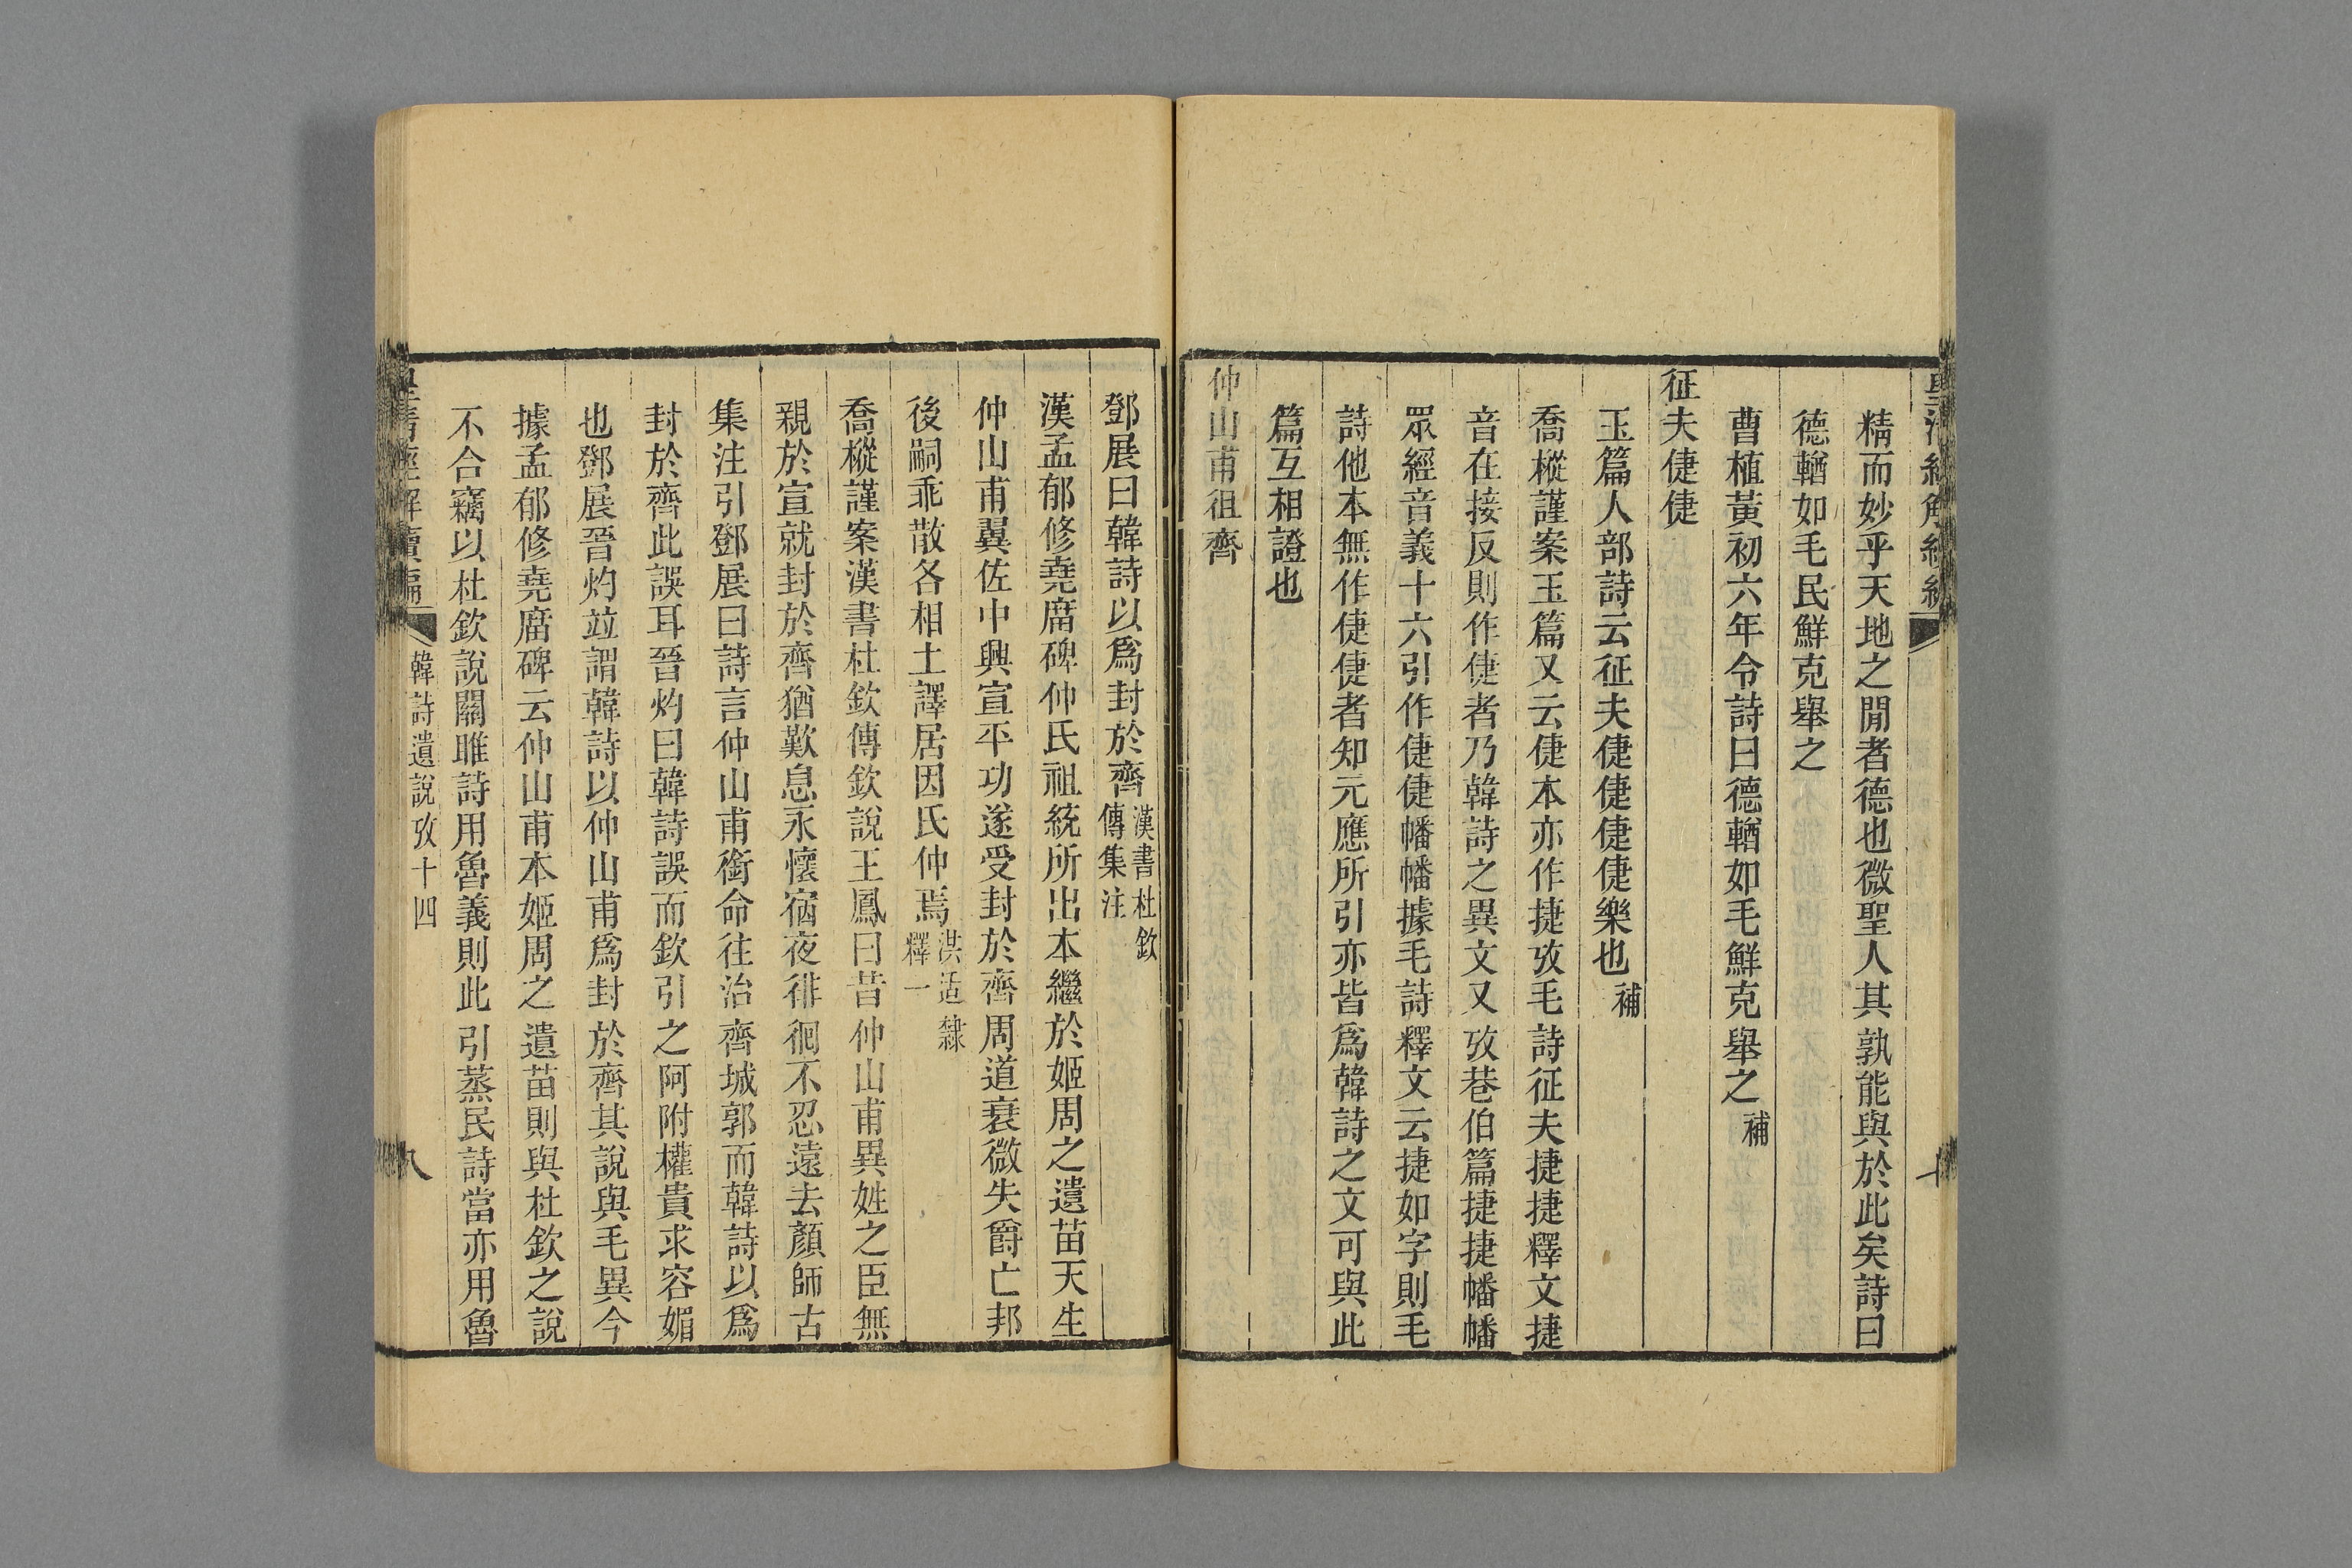 精而妙乎天地之閒者德也微聖人其孰能與於此矣詩曰
德輶如毛民鮮克舉之
曹植黃初六年令詩曰德輶如毛鮮克舉之補
征夫倢倢
玉篇人部詩云征夫倢倢倢倢樂也補
喬樅謹案玉篇又云倢本亦作捷攷毛詩征夫捷捷釋文捷
音在接反則作倢者乃韓詩之異文又攷巷伯篇捷捷幡幡
眾經音義十六引作倢倢幡幡據毛詩釋文云捷如字則毛
詩他本無作倢倢者知元應所引亦皆爲韓詩之文可與此
篇互相證也
仲山甫徂齊
鄧展曰韓詩以爲封於齊漢書杜欽傳集注
漢孟郁修堯廟碑仲氏祖統所出本繼於姬周之遺苗天生
仲山甫翼佐中興宣平功遂受封於齊周道衰微失爵亡邦
後嗣乖散各相土譯居因氏仲焉洪适隸釋一
喬樅謹案漢書杜欽傳欽說王鳳曰昔仲山甫異姓之臣無
親於宣就封於齊猶歎息永懷宿夜徘徊不忍遠去顏師古
集注引鄧展曰詩言仲山甫銜命往治齊城郭而韓詩以爲
封於齊此誤耳晉灼曰韓詩誤而欽引之阿附權貴求容媚
也鄧展晉灼竝謂韓詩以仲山甫爲封於齊其說與毛異今
據孟郁修堯廟碑云仲山甫本姬周之遺苗則與杜欽之說
不合竊以杜欽說關雎詩用魯義則此引蒸民詩當亦用魯
皇清經解續編 韓詩遺說攷十四 八